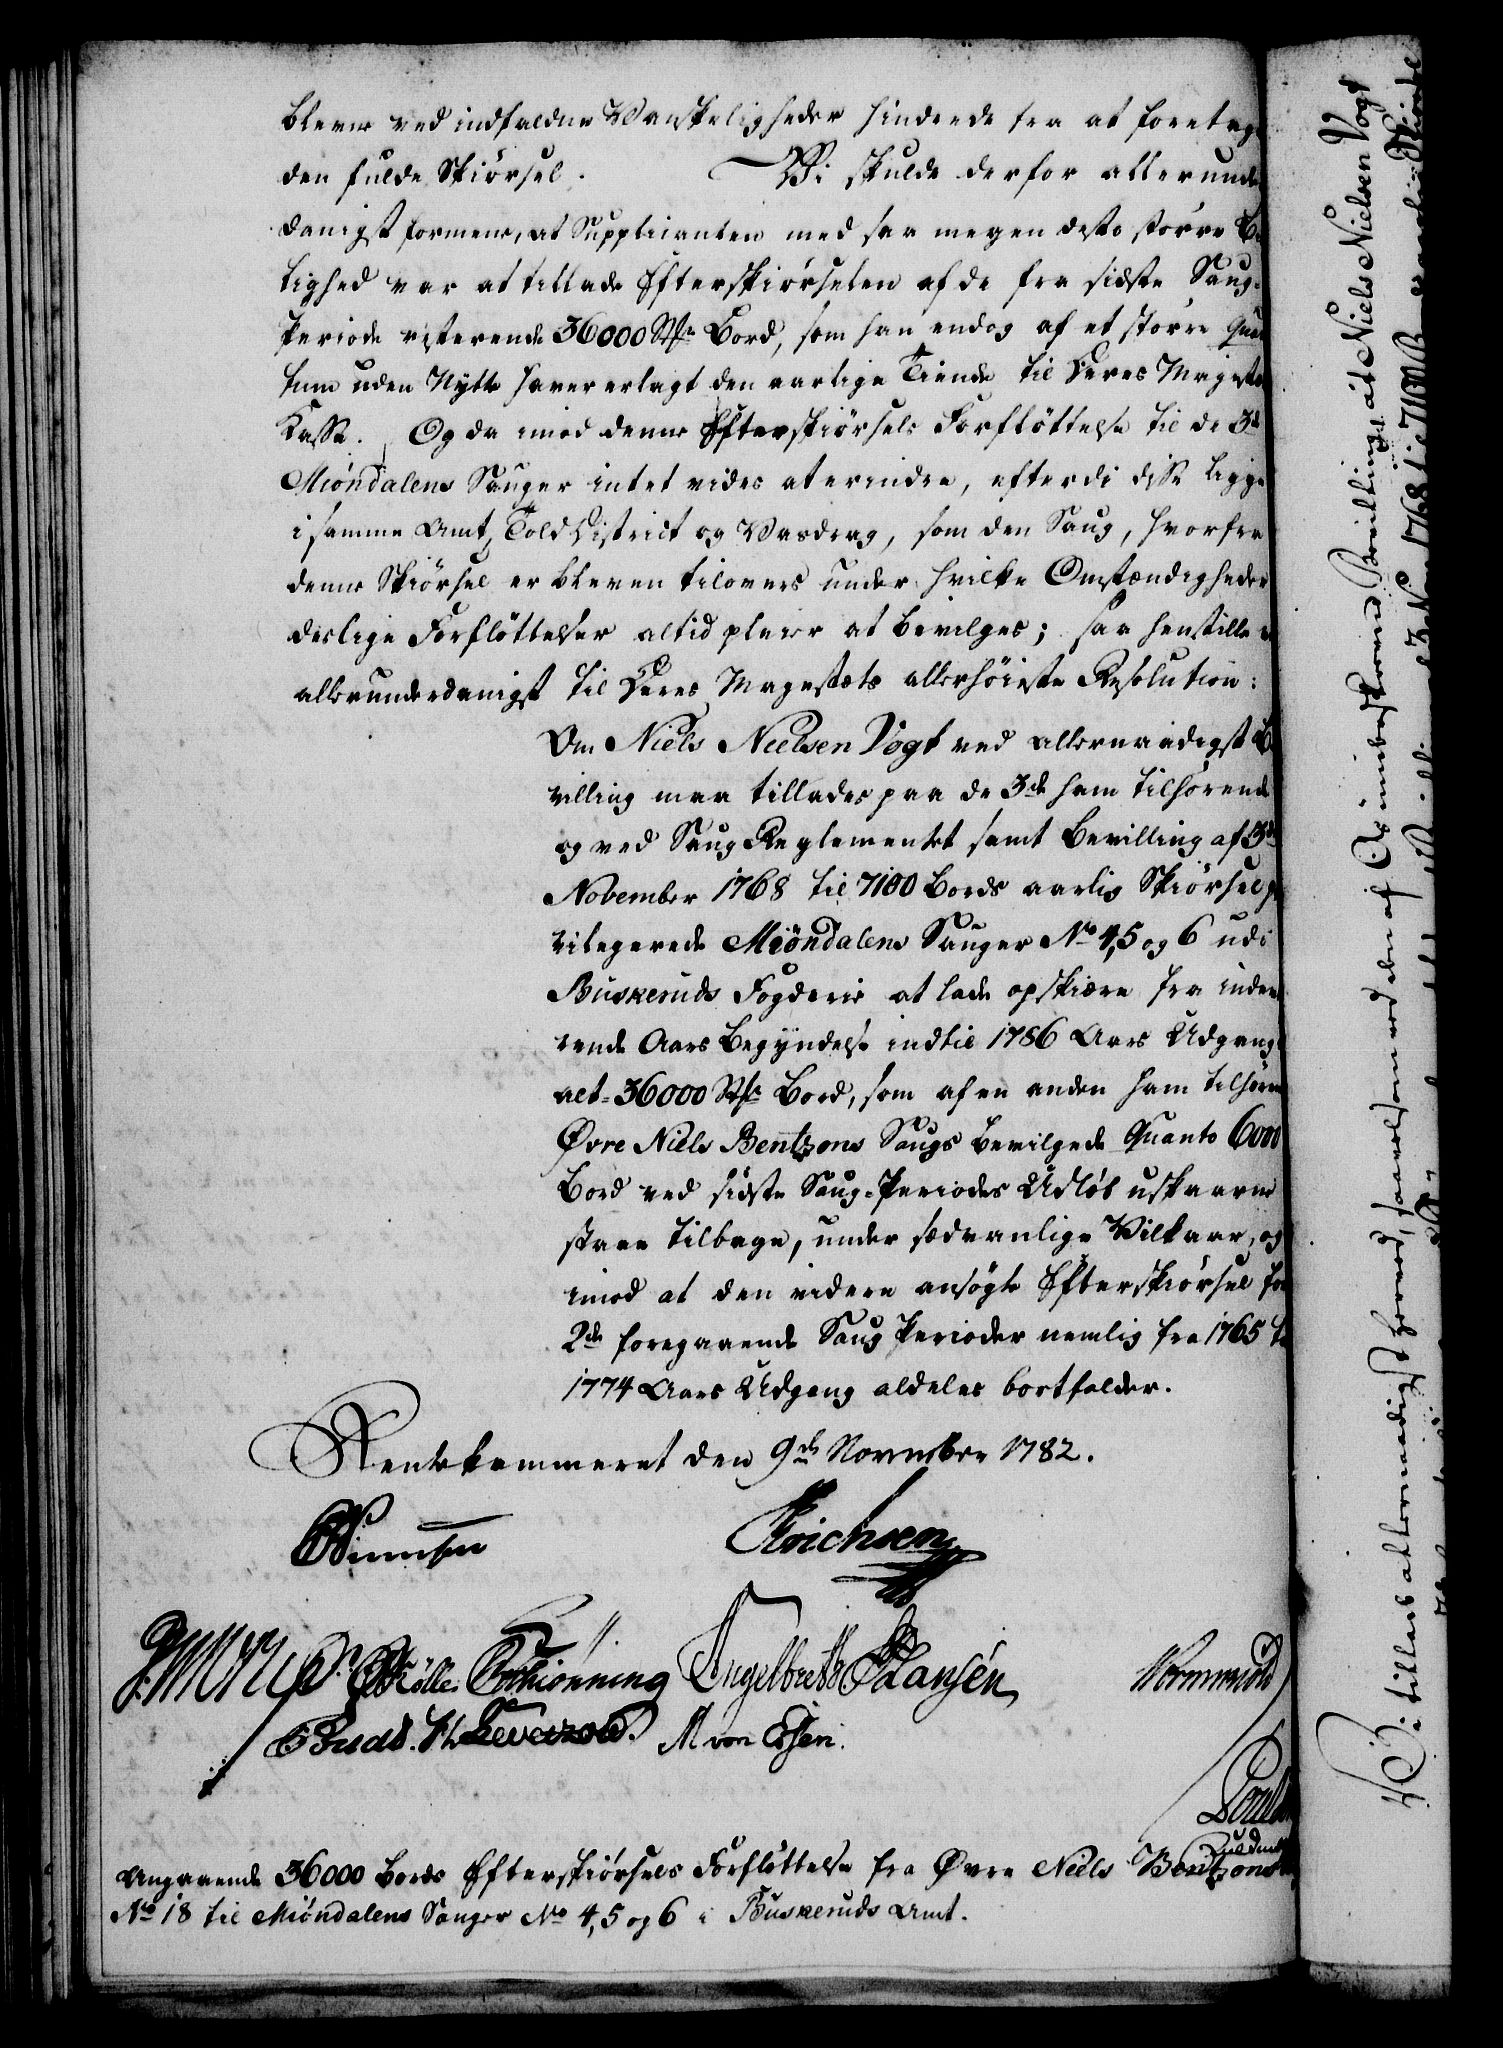 bleven ved indfaldne Vanskeligheder hindrede fra at foretage
den fulde Skiørsel. Vi skulde derfor allerunder
danigst formene, at Supplicanten med saa megen desto større Bi
lighed var at tillade Efterskiørselen af de fra sidste Saug-
Periode resterende 36000 St. Bord, som han endog af et større Quan
tum uden Nytte haver erlagt den aarlige Tiende til Deres Majestæts
Kasse. Og da imod denne Efterskiørsels Forflöttelse til de 3de
Miöndalens Sauger intet vides at erindre, efterdi disse ligge
i samme Amt, Told District og Vasdrag, som den Saug, hvorfra
denne Skiørsel er bleven tilovers under hvilke Omstændigheder
deslige Forflöttelser altid pleier at bevilges; saa henstilles
allerunderdanigst til Deres Majestæts allerhøieste Resolution:
Om Niels Nielsen Vogt ved allernaadigst Be
villing maa tillades paa de 3de ham tilhørende
og ved Saug Reglementet samt Bevilling af 3de
November 1768 til 7100 Bords aarlig Skiørsel pri
vilegerede Miöndalens Sauger No 4, 5 og 6 udi
Buskeruds Fogderie at lade opskiære fra inde
rende Aars Begyndelse indtil 1786 Aars Udgang
alt 36000 St. Bord, som af en anden ham tilhøren
Øvre Niels Bentzons Saugs bevilgede Quanto 6000
Bord ved sidste Saug-Periodes Udløb uskaarne
staae tilbage, under sædvanlige Vilkaar, og
imod at den videre ansøgte Efterskiørsel for
2de foregaaende Saug Perioder nemlig fra 1765 til
1774 Aars Udgang aldeles bortfalder.
Rentekammeret den 9de November 1782.
Erichsen
Schiønning Engelbreth Hansen Wormskiold
M von Essen.
Angaaende 36000 Bords Efterskiørsels Forflöttelse fra Øvre Niels Bentzons
No 18 til Miöndalens Sauger No 4, 5 og 6 i Buskeruds Amt.
Vi tillade allernaadigst herved, saavelsom ved den af Os underskrevne Bevilling, at Niels Nielsen Vogt